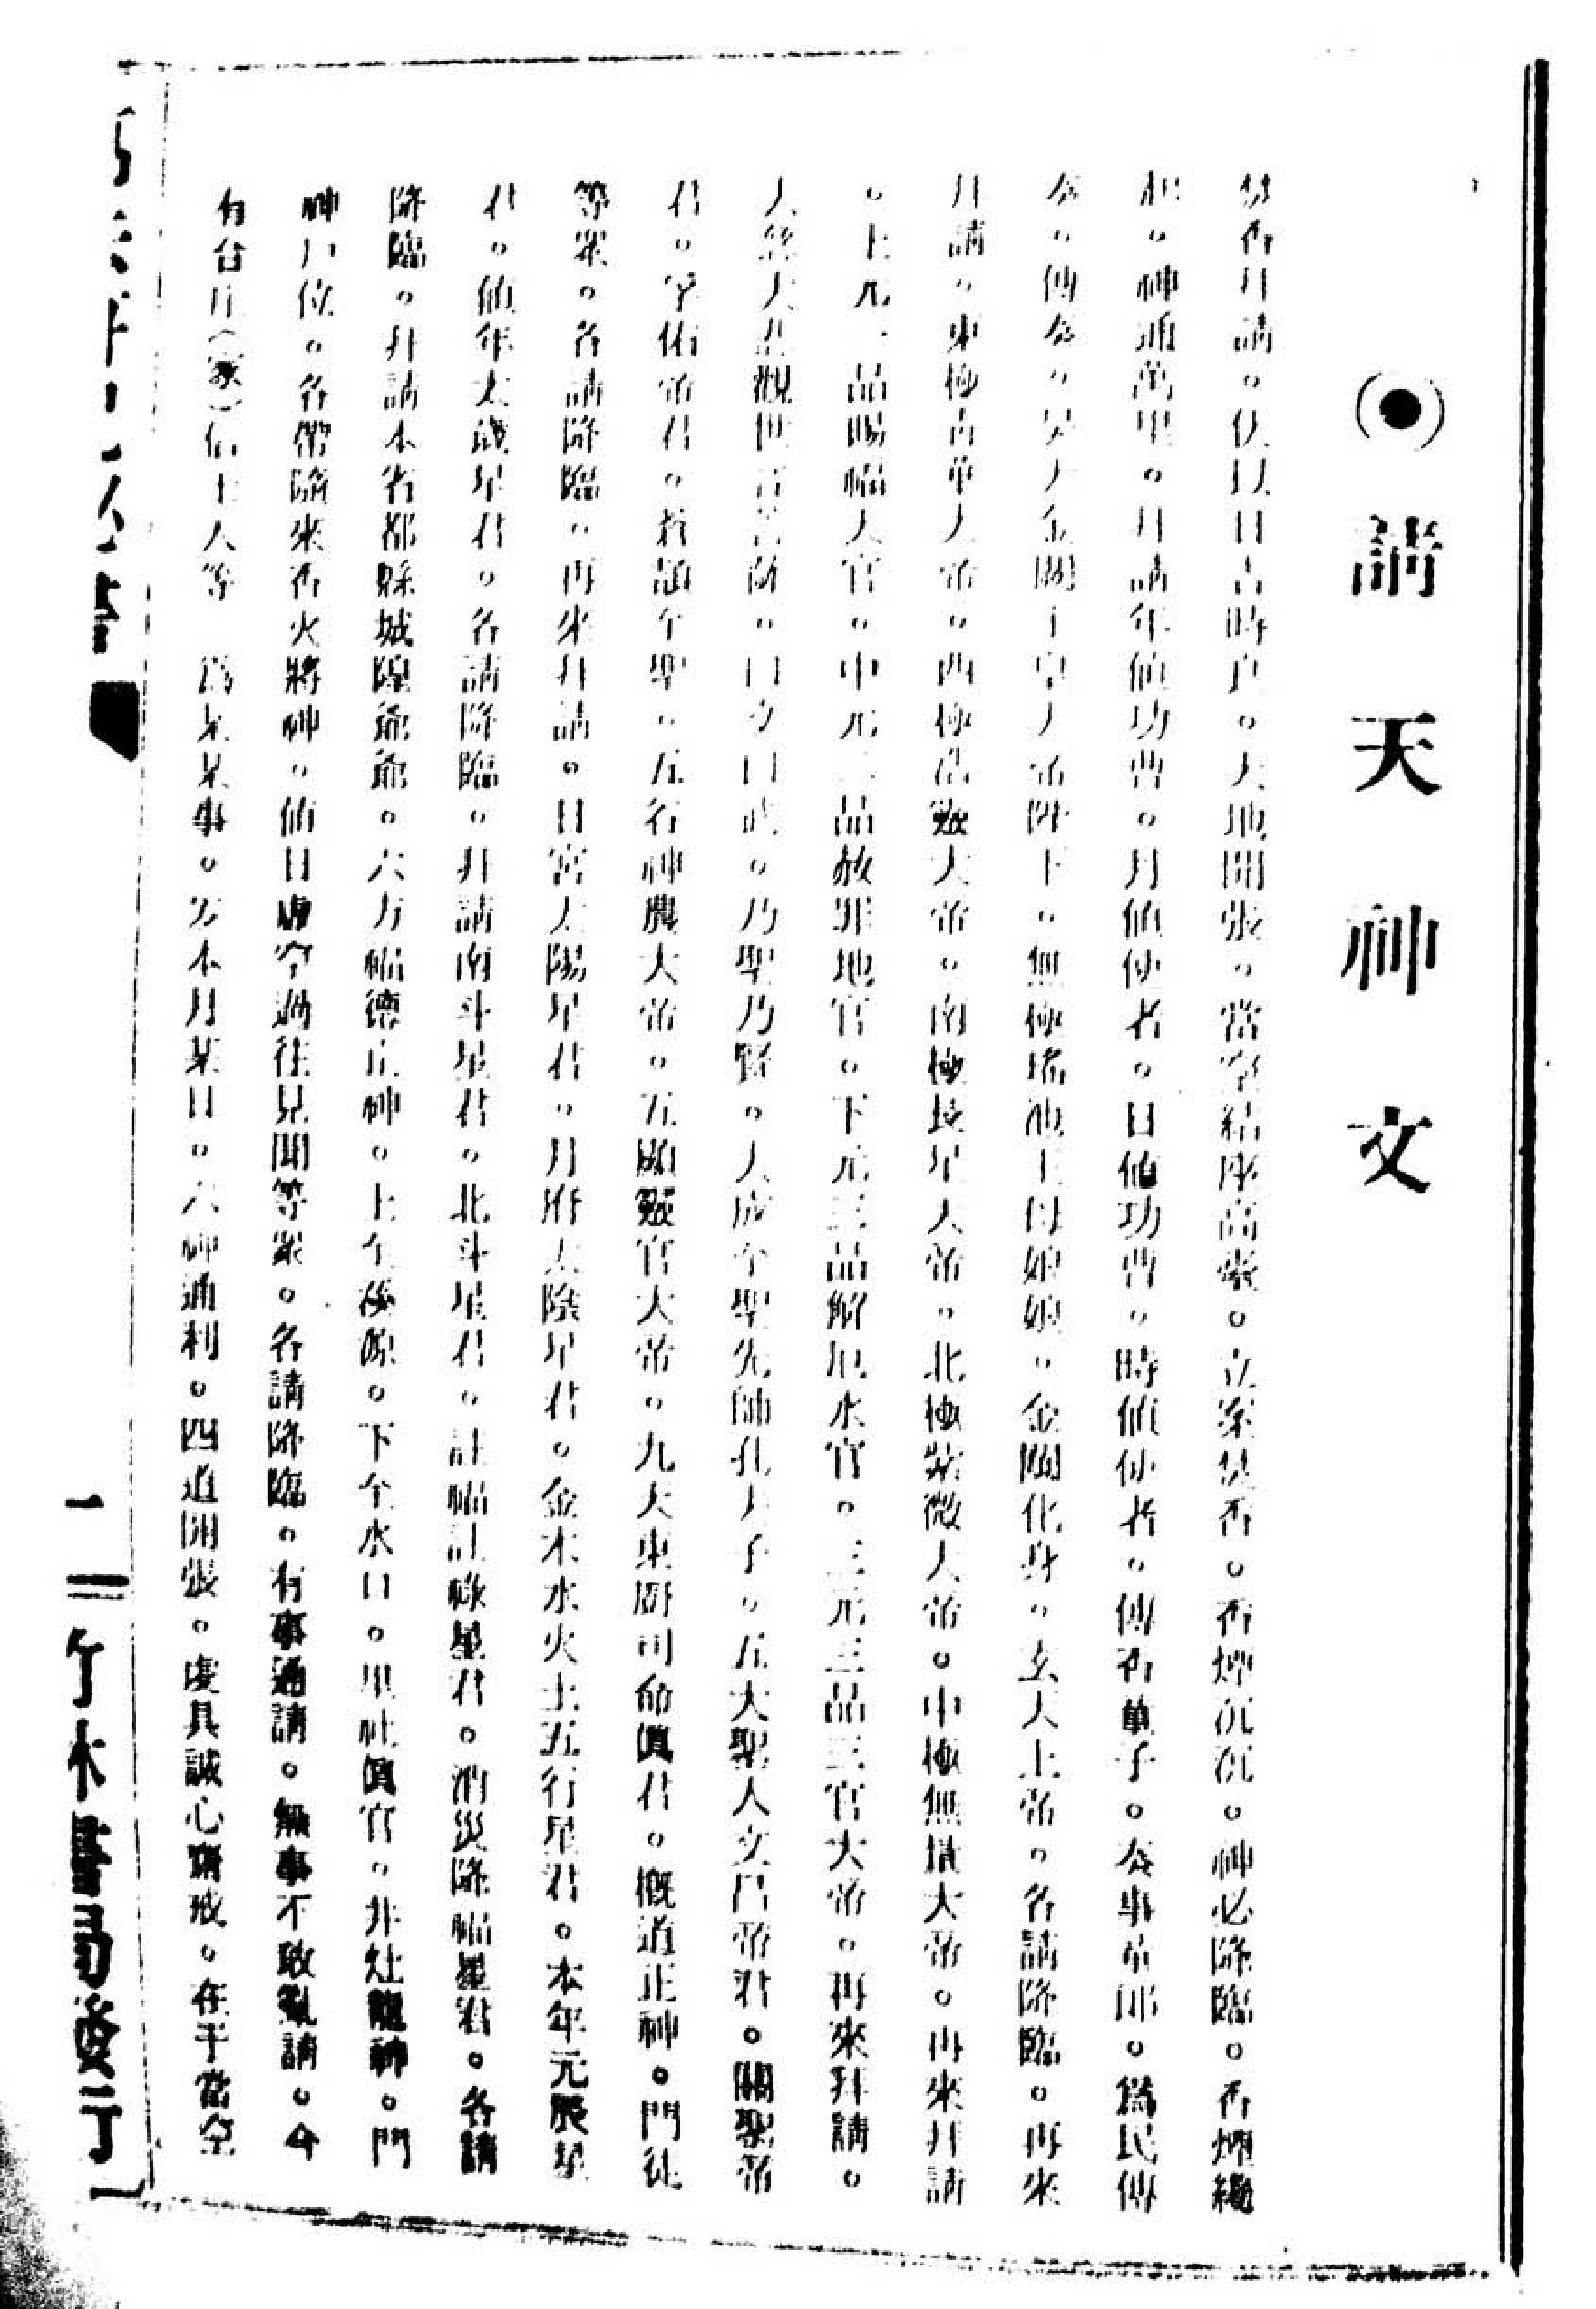 請天神文
焚香拜請。伏以日吉時良。天地開張。當空結座高張。立案焚香。香煙沉沉。神必降臨。香煙繞
起。神通萬里。拜請年值功曹。月值使者。日值功曹。時值使者。傳香童子。奏事童郎。為民傳
奏。傳奏。昊天金闕玉皇大帝陛下。無極瑤池王母娘娘。金闕化身。玄天上帝。各請降臨。再來
拜請。東極青華大帝。西極浩皇大帝。南極長星大帝。北極紫微大帝。中極無壞大帝。再來拜請
。上元一品賜福天官。中元二品赦罪地官。下元三品解厄水官。三元三品三官大帝。再來拜請。
大慈大悲觀世音菩薩。曰文曰武。乃聖乃賢。大成至聖先師孔夫子。五大聖人文昌帝君。關聖帝
君。孚佑帝君。蒼頡至聖。五行神農大帝。五顯靈官大帝。九天東廚司命真君。概道正神。門徒
等眾。各請降臨。再來拜請。日宮太陽星君。月府太陰星君。金木水火土五行星君。本年元辰星
君。值年太歲星君。各請降臨。拜請南斗星君。北斗星君。註福註祿星君。消災降福星君。各請
降臨。拜請本省都縣城隍爺爺。六方福德正神。上至源。下至水口。里社真官。井灶龍神。門
神戶位。各帶隨來香火將神。值日虛空過往見聞等眾。各請降臨。有事通請。無事不敢亂請。今
有台庄（家）信士人等　為某某事。方本月某日。六神通利。四道開張。虔具誠心齋戒。在于當空
二　竹林書局發行